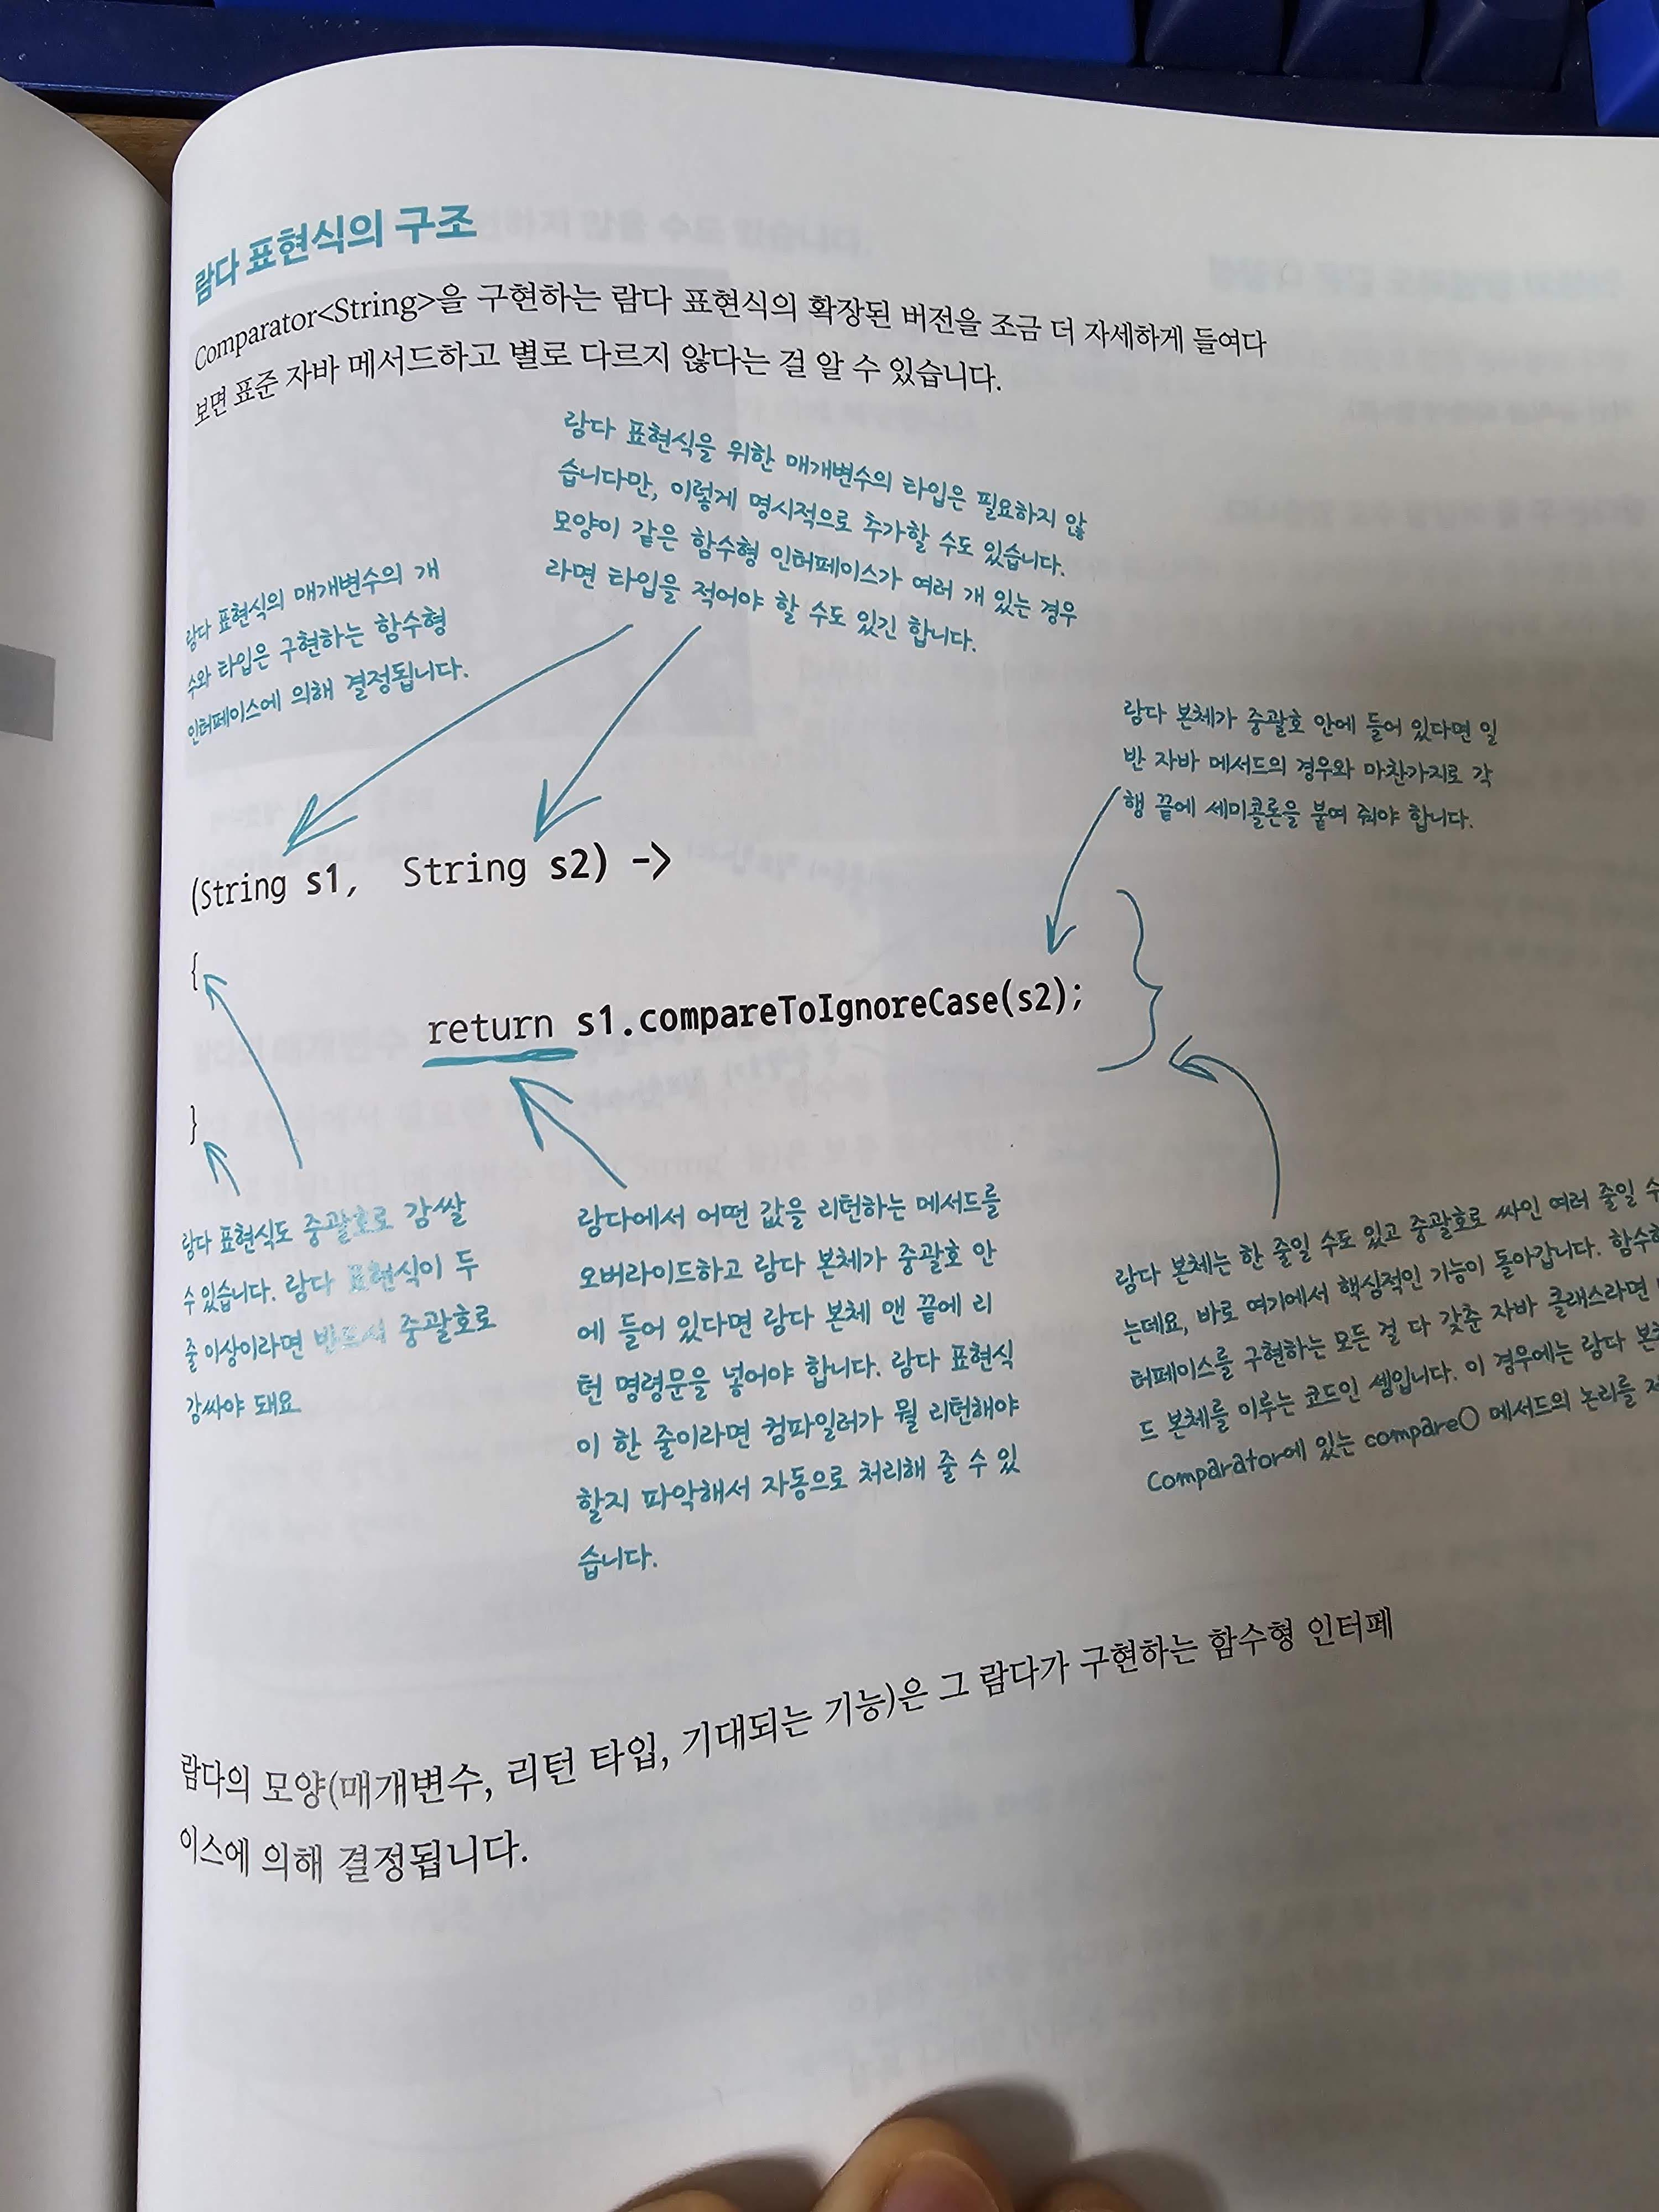 람다 표현식의 구조
Comparator<String>을 구현하는 람다 표현식의 확장된 버전을 조금 더 자세하게 들여다
보면 표준 자바 메서드하고 별로 다르지 않다는 걸 알 수 있습니다.
람다 표현식을 위한 매개변수의 타입은 필요하지 않
습니다만, 이렇게 명시적으로 추가할 수도 있습니다.
모양이 같은 함수형 인터페이스가 여러 개 있는 경우
라면 타입을 적어야 할 수도 있긴 합니다.
람다 표현식의 매개변수의 개
수와 타입은 구현하는 함수형
인터페이스에 의해 결정됩니다.
람다 본체가 중괄호 안에 들어 있다면 일
반 자바 메서드의 경우와 마찬가지로 각
행 끝에 세미콜론을 붙여 줘야 합니다.
(String s1, String s2) ->
{
return s1.compareToIgnoreCase(s2);
}
람다 표현식도 중괄호로 감쌀
수 있습니다. 람다 표현식이 두
줄 이상이라면 반드시 중괄호로
감싸야 돼요
람다에서 어떤 값을 리턴하는 메서드를
오버라이드하고 람다 본체가 중괄호 안
에 들어 있다면 람다 본체 맨 끝에 리
턴 명령문을 넣어야 합니다. 람다 표현식
이 한 줄이라면 컴파일러가 뭘 리턴해야
할지 파악해서 자동으로 처리해 줄 수 있
습니다.
람다 본체는 한 줄일 수도 있고 중괄호로 싸인 여러 줄일 수
는데요, 바로 여기에서 핵심적인 기능이 돌아갑니다. 함수형
터페이스를 구현하는 모든 걸 다 갖춘 자바 클래스라면
드 본체를 이루는 코드인 셈입니다. 이 경우에는 람다 본체
Comparator에 있는 compare() 메서드의 논리를
람다의 모양(매개변수, 리턴 타입, 기대되는 기능)은 그 람다가 구현하는 함수형 인터페
이스에 의해 결정됩니다.